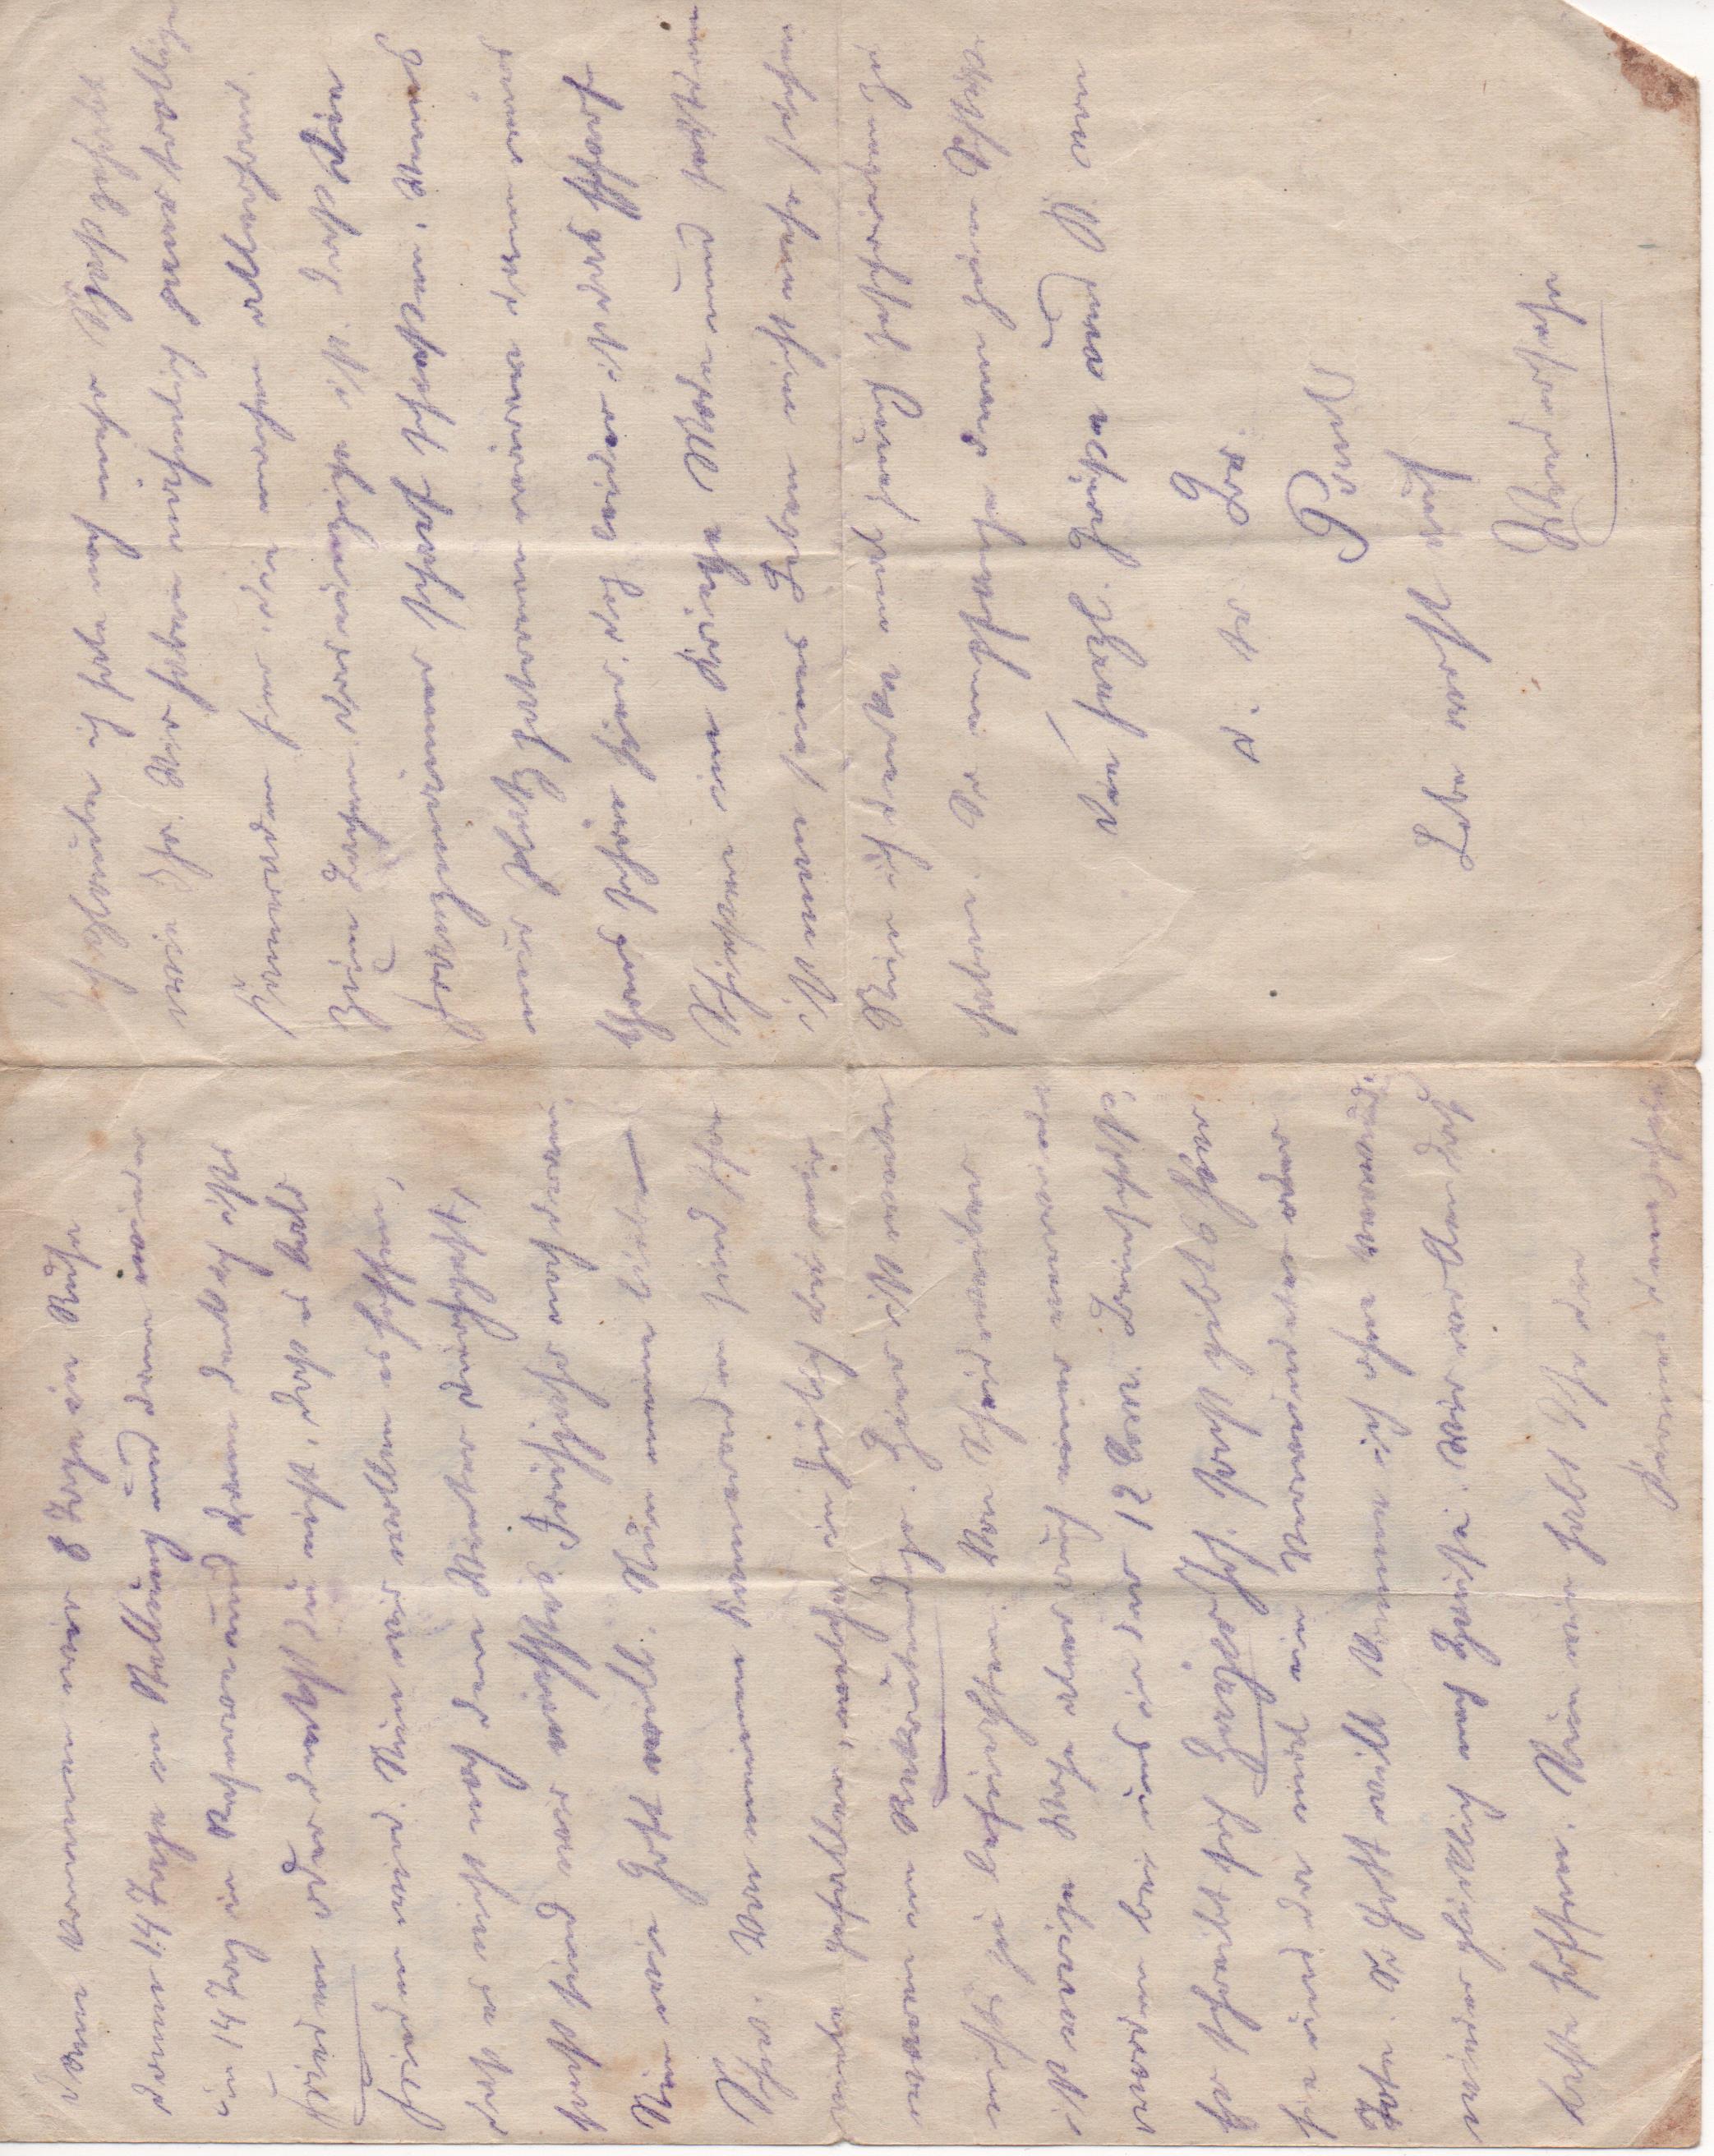 dann kommen wir 8 Tage in Ruhe
dann 14 Tage in Stellung und dann wieder
in 14 Tag in Reserve und dann denk ich ists
Frieden oder denkst du nicht, daß es bald
Frieden wird. Nun wir wollen es hoffen,
daß es nicht noch den Winter durchgeht,
sonst sind wir nächstes Frühjahr noch dran.
Nun wie Gott will. Nun meine liebe
Schw. Von meinen Kameraden sind schon
viele gefallen, welche in Jülich bei mir
waren im Rekrutendepo. Hier ist weiter
nichts zu befürchten. Von Scheidweiler
ist vorige Woche aber auch einer verwundet
worden bei uns in der 12 Com. Beinschuß,
Er schreibt sich Hayer Jos. sonst gibts hier
hie und da mal ein Verwundeter oder
Tote. So Gott will komme ich ohne Verwund.
wieder glücklich nach Hause. Wir wollen das
beste hoffen. Nun wie habt Ihr die
Kirmes denn gehabt
Ich glaube ich habe noch mehr Spaß gehabt
wie Ihr. Wir haben nähmlich paar trollige
Kameraden hier, die machen allerhand
zum Lachen. Das einzige ist, daß die
Franzmänner scharf schießen. Wenns
nur Platzpatronen wären dann wärs
Ganz schön hier. Doch leider ist das scharf
Schießen im Kriege Mode und
ist man seines Leben nicht mehr sicher
Nun ich denke mal genug geschrieben zu
haben. So empfange denn zum Schluß
die herzl. Grüße und K. von
d. tr Br.
Paul
Lebe wohl auf
Wiedersehn